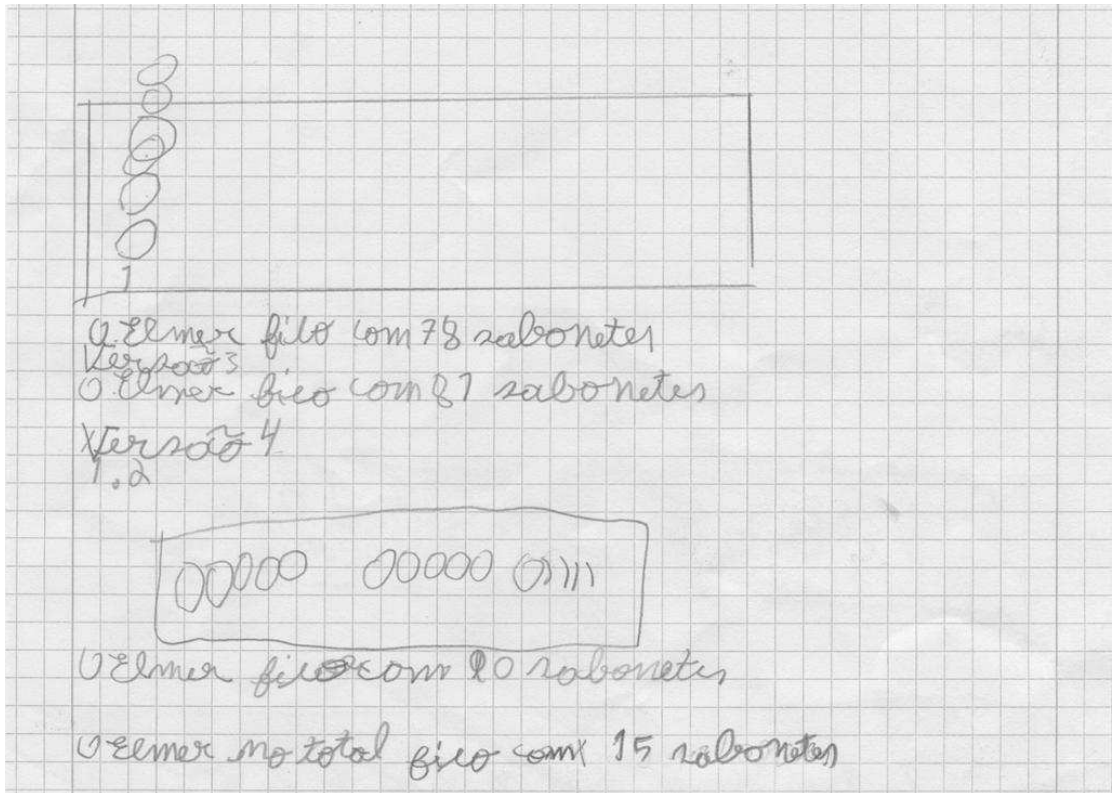 1
O Elmer fico com 78 sabonetes
Versão 3
O Elmer fico com 81 sabonetes
Versão 4
1.2
O Elmer fico com 10 sabonetes
O Elmer no total fico com 15 sabonetes